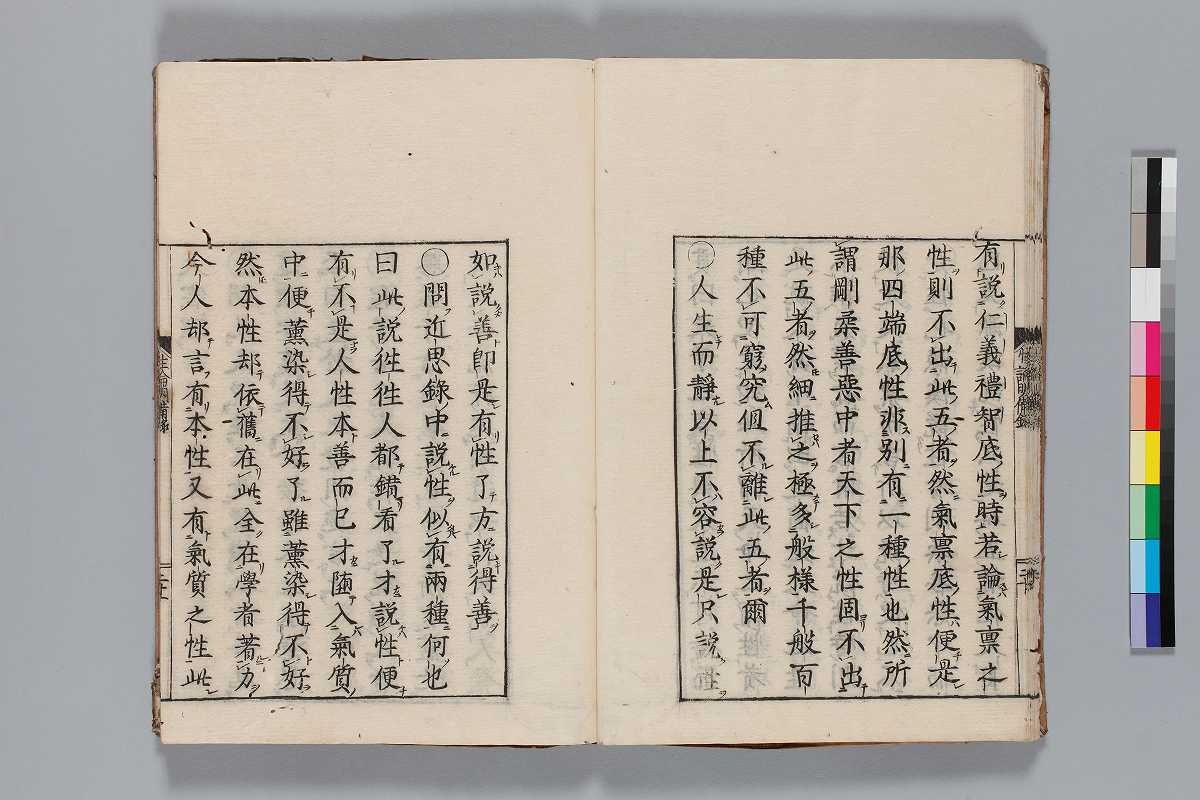 有說仁義禮智底性時若論氣禀之
性則不出此五者然氣禀底性便是
那四端底性非別有一種性也然所
謂剛柔善惡中者天下之性固不出
此五者然細推之極多般樣千般百
種不可窮究但不離此五者爾
○人生而靜以上不容說是只說
如說善即是有性了方說得善
○問近思錄中說性似有兩種何也
曰此說徃徃人都錯看了才說性便
有不是人性本善而已才墮入氣質
中便薰染得不好了雖薰染得不好
然本性却依舊在此全在學者著力
今人却言有本性又有氣質之性此